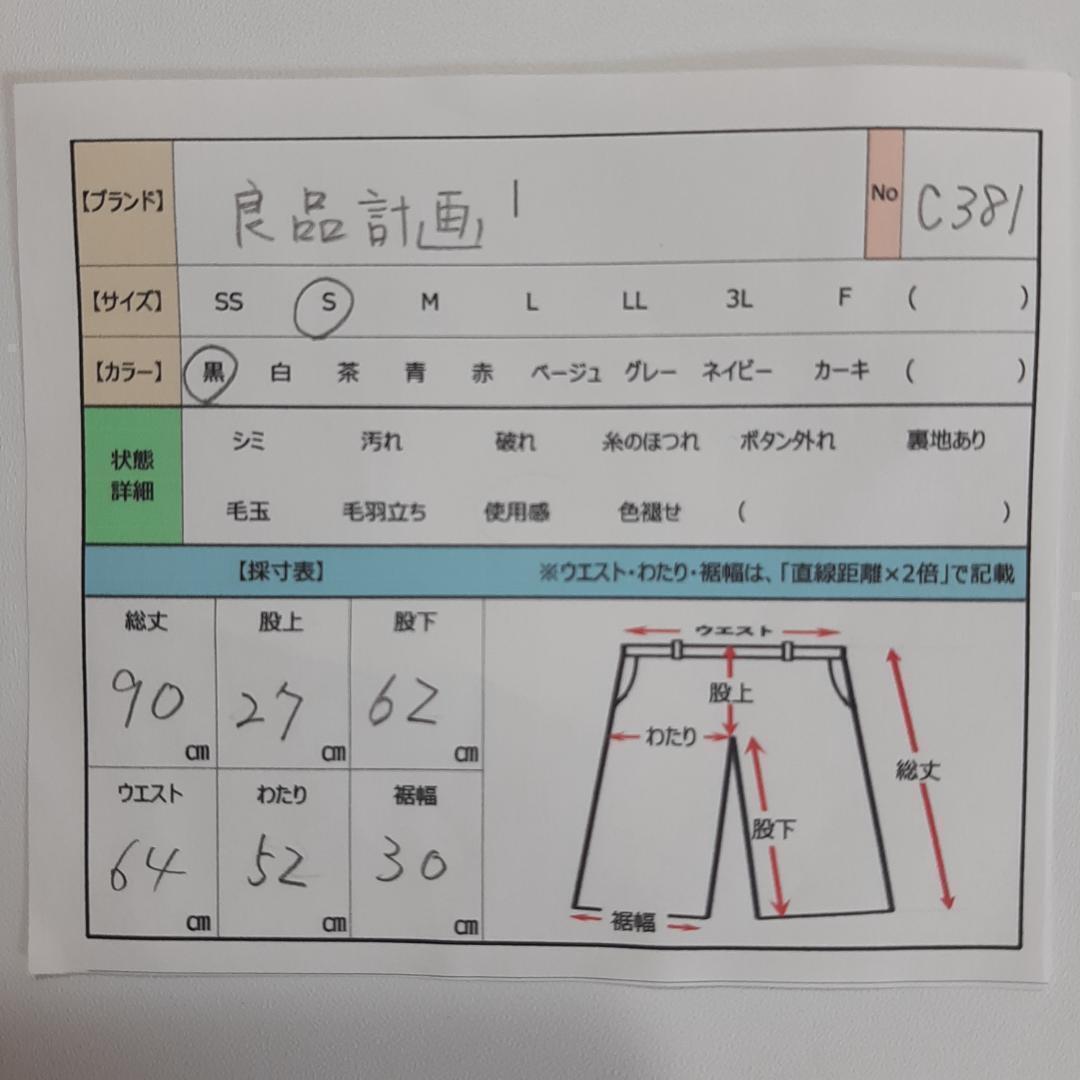 【ブランド】 良品計画 No C381
【サイズ】 SS S M L LL 3L F ( )
【カラー】 黒 白 茶 青 赤 ベージュ グレー ネイビー カーキ ( )
状態
詳細
シミ 汚れ 破れ 糸のほつれ ボタン外れ 裏地あり
毛玉 毛羽立ち 使用感 色褪せ ( )
【採寸表】 ※ウエスト・わたり・裾幅は、「直線距離×2倍」で記載
総丈 股上 股下
90 cm 27 cm 62 cm
ウエスト わたり 裾幅
64 cm 52 cm 30 cm
ウエスト
股上
わたり
総丈
股下
裾幅